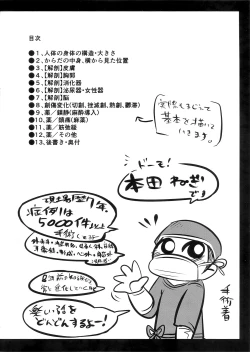 目次
●１、人体の身体の構造・大きさ
●２、からだの中身、横から見た位置
●３、【解剖】皮膚
●４、【解剖】胸郭
●５、【解剖】消化器
●６、【解剖】泌尿器・女性器
●７、【解剖】脳
●８、創傷変化（切創、挫滅創、熱創、鬱滞）
●９、薬／鎮静（麻酔導入）
●10、薬／鎮痛（麻薬）
●11、薬／筋弛緩
●12、薬／その他
●13、後書き・奥付
基本を描いて
いきます。
ドーモ！
本田ねぎ
です
現場型7年、
症例は
5000件以上
手術
手術着
楽しい話を
どんどんするよー！